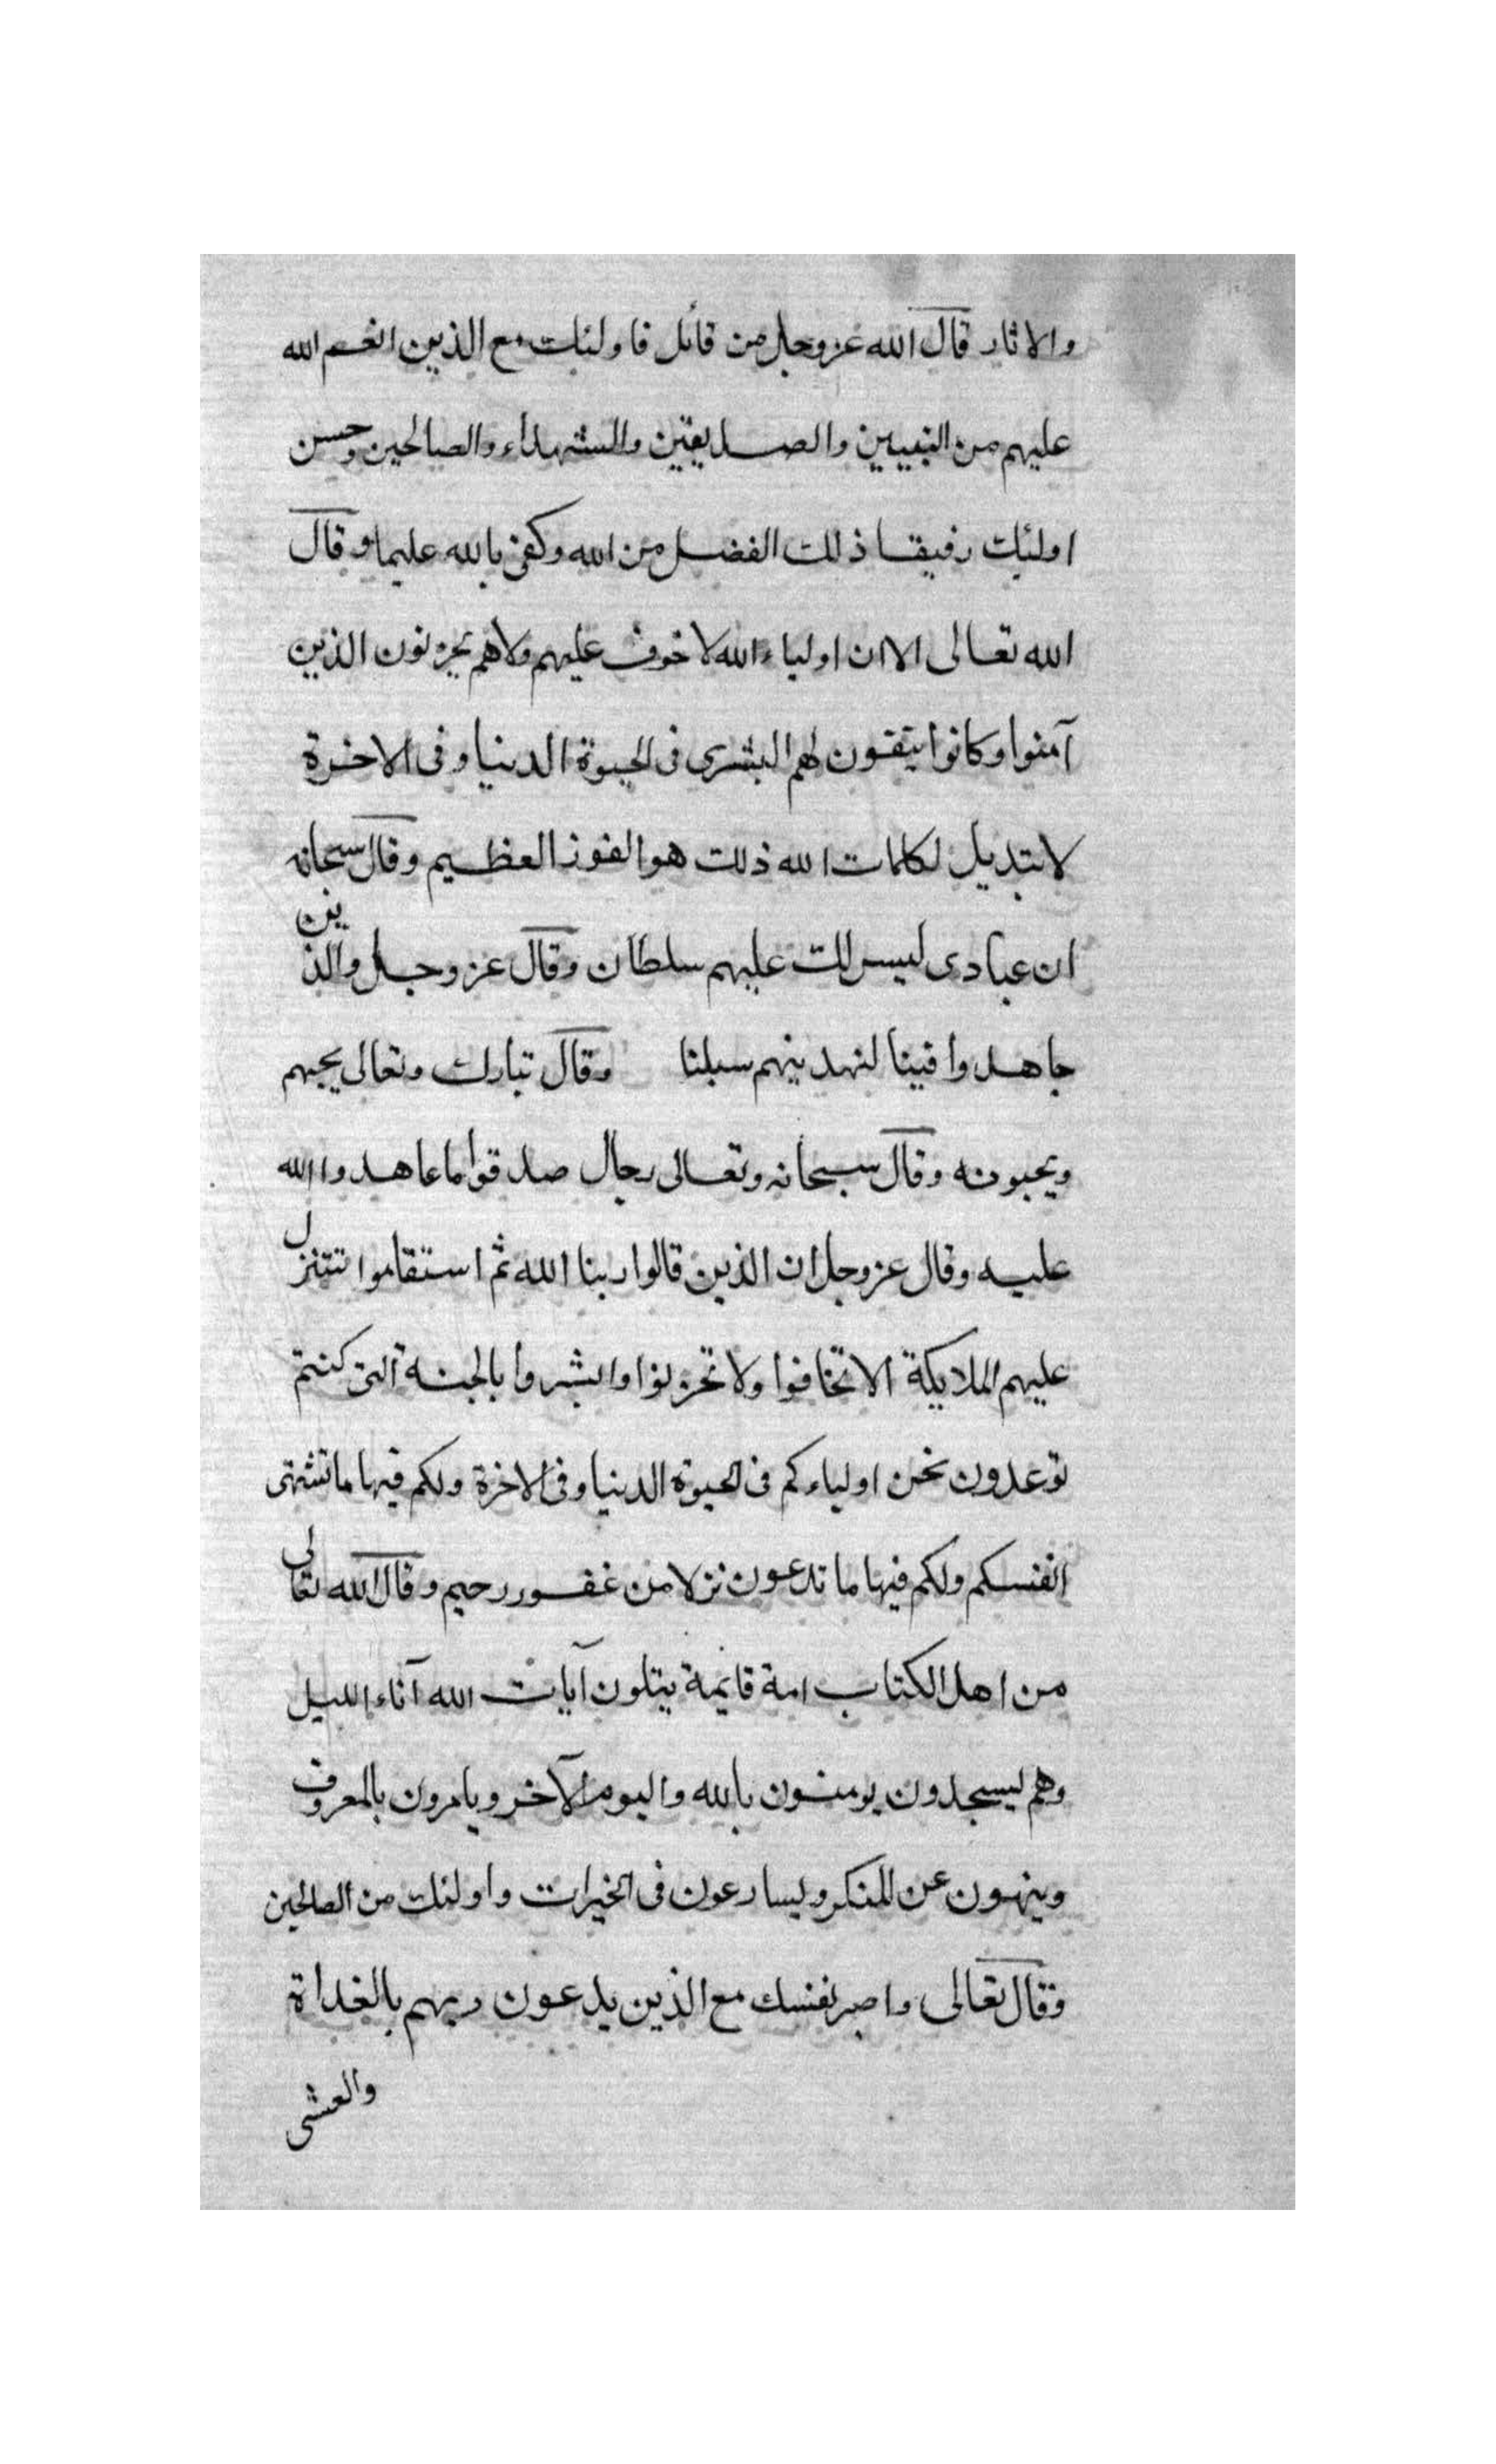 والاثار قال الله عز وجل من قائل فاولئك مع الذين انعم الله
عليهم من النبيين والصديقين والشهداء والصالحين وحسن
اولئك رفيقا ذلك الفضل من الله وكفى بالله عليما وقال
الله تعالى الا ان اولياء الله لا خوف عليهم ولا هم يحزنون الذين
آمنوا وكانوا يتقون لهم البشرى فى الحيوة الدنيا وفى الاخرة
لا تبديل لكلمات الله ذلك هو الفوز العظيم وقال سبحانه
ان عبادى ليس لك عليهم سلطان وقال عز وجل والذين
جاهدوا فينا لنهدينهم سبلنا وقال تبارك وتعالى يحبهم
ويحبونه وقال سبحانه وتعالى رجال صدقوا ما عاهدوا الله
عليه وقال عز وجل ان الذين قالوا ربنا الله ثم استقاموا تتنزل
عليهم الملايكة الا تخافوا ولا تحزنوا وابشروا بالجنة التى كنتم
توعدون نحن اولياءكم فى الحيوة الدنيا وفى الاخرة ولكم فيها ما تشتهى
انفسكم ولكم فيها ما تدعون نزلا من غفور رحيم وقال الله تعالى
من اهل الكتاب امة قايمة يتلون آيات الله آناء الليل
وهم يسجدون يومنون بالله واليوم الآخر ويامرون بالمعروف
وينهون عن المنكر ويسارعون فى الخيرات واولئك من الصالحين
وقال تعالى واصبر نفسك مع الذين يدعون ربهم بالغداة
والعشى